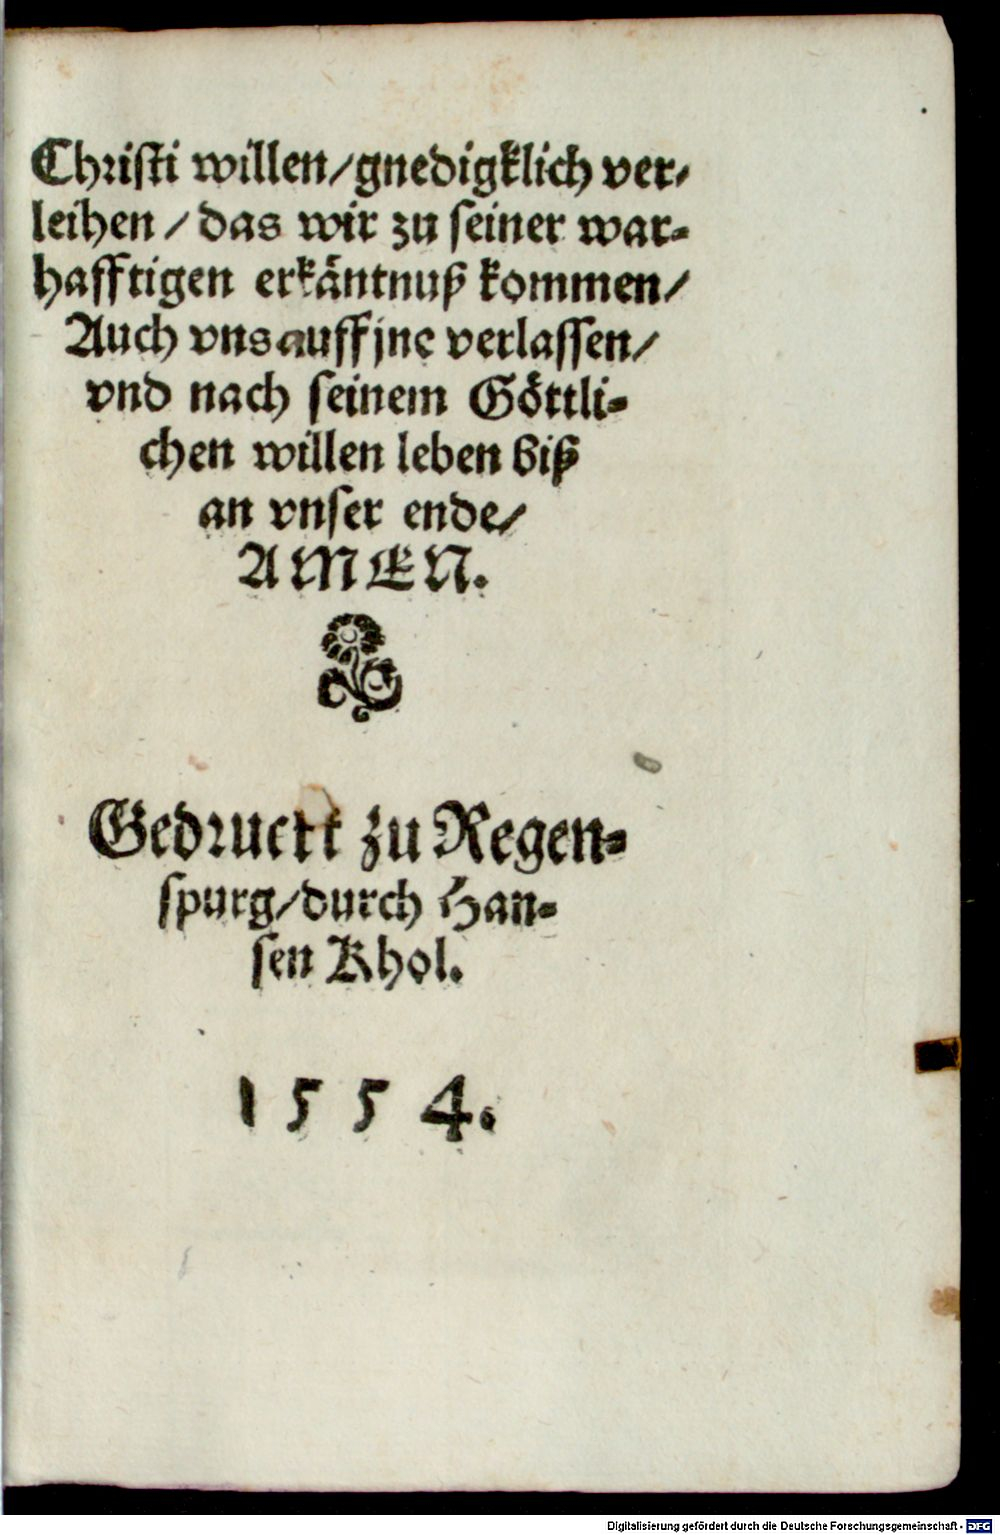 Christi willen/gnedigklich ver-
leihen/das wir zu seiner war-
hafftigen erkäntnuß kommen/
Auch vns auff jne verlassen/
vnd nach seinem Göttli-
chen willen leben biß
an vnser ende/
AMEN.
Gedruckt zu Regen-
spurg/durch Han-
sen Khol.
1554.
Digitalisierung gefördert durch die Deutsche Forschungsgemeinschaft - DFG